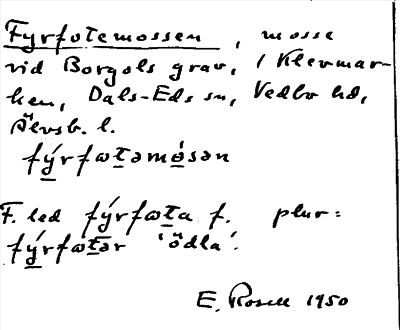 Fyrfotemossen, mosse
vid Borgols grav, i Klevmar-
ken, Dals-Eds sn, Vedbo hd,
Älvsb. l.
fýrfωtəmósən
F. led fýrfωta f. plur:
fýrfωtər 'ödla'.
E. Rosell 1950